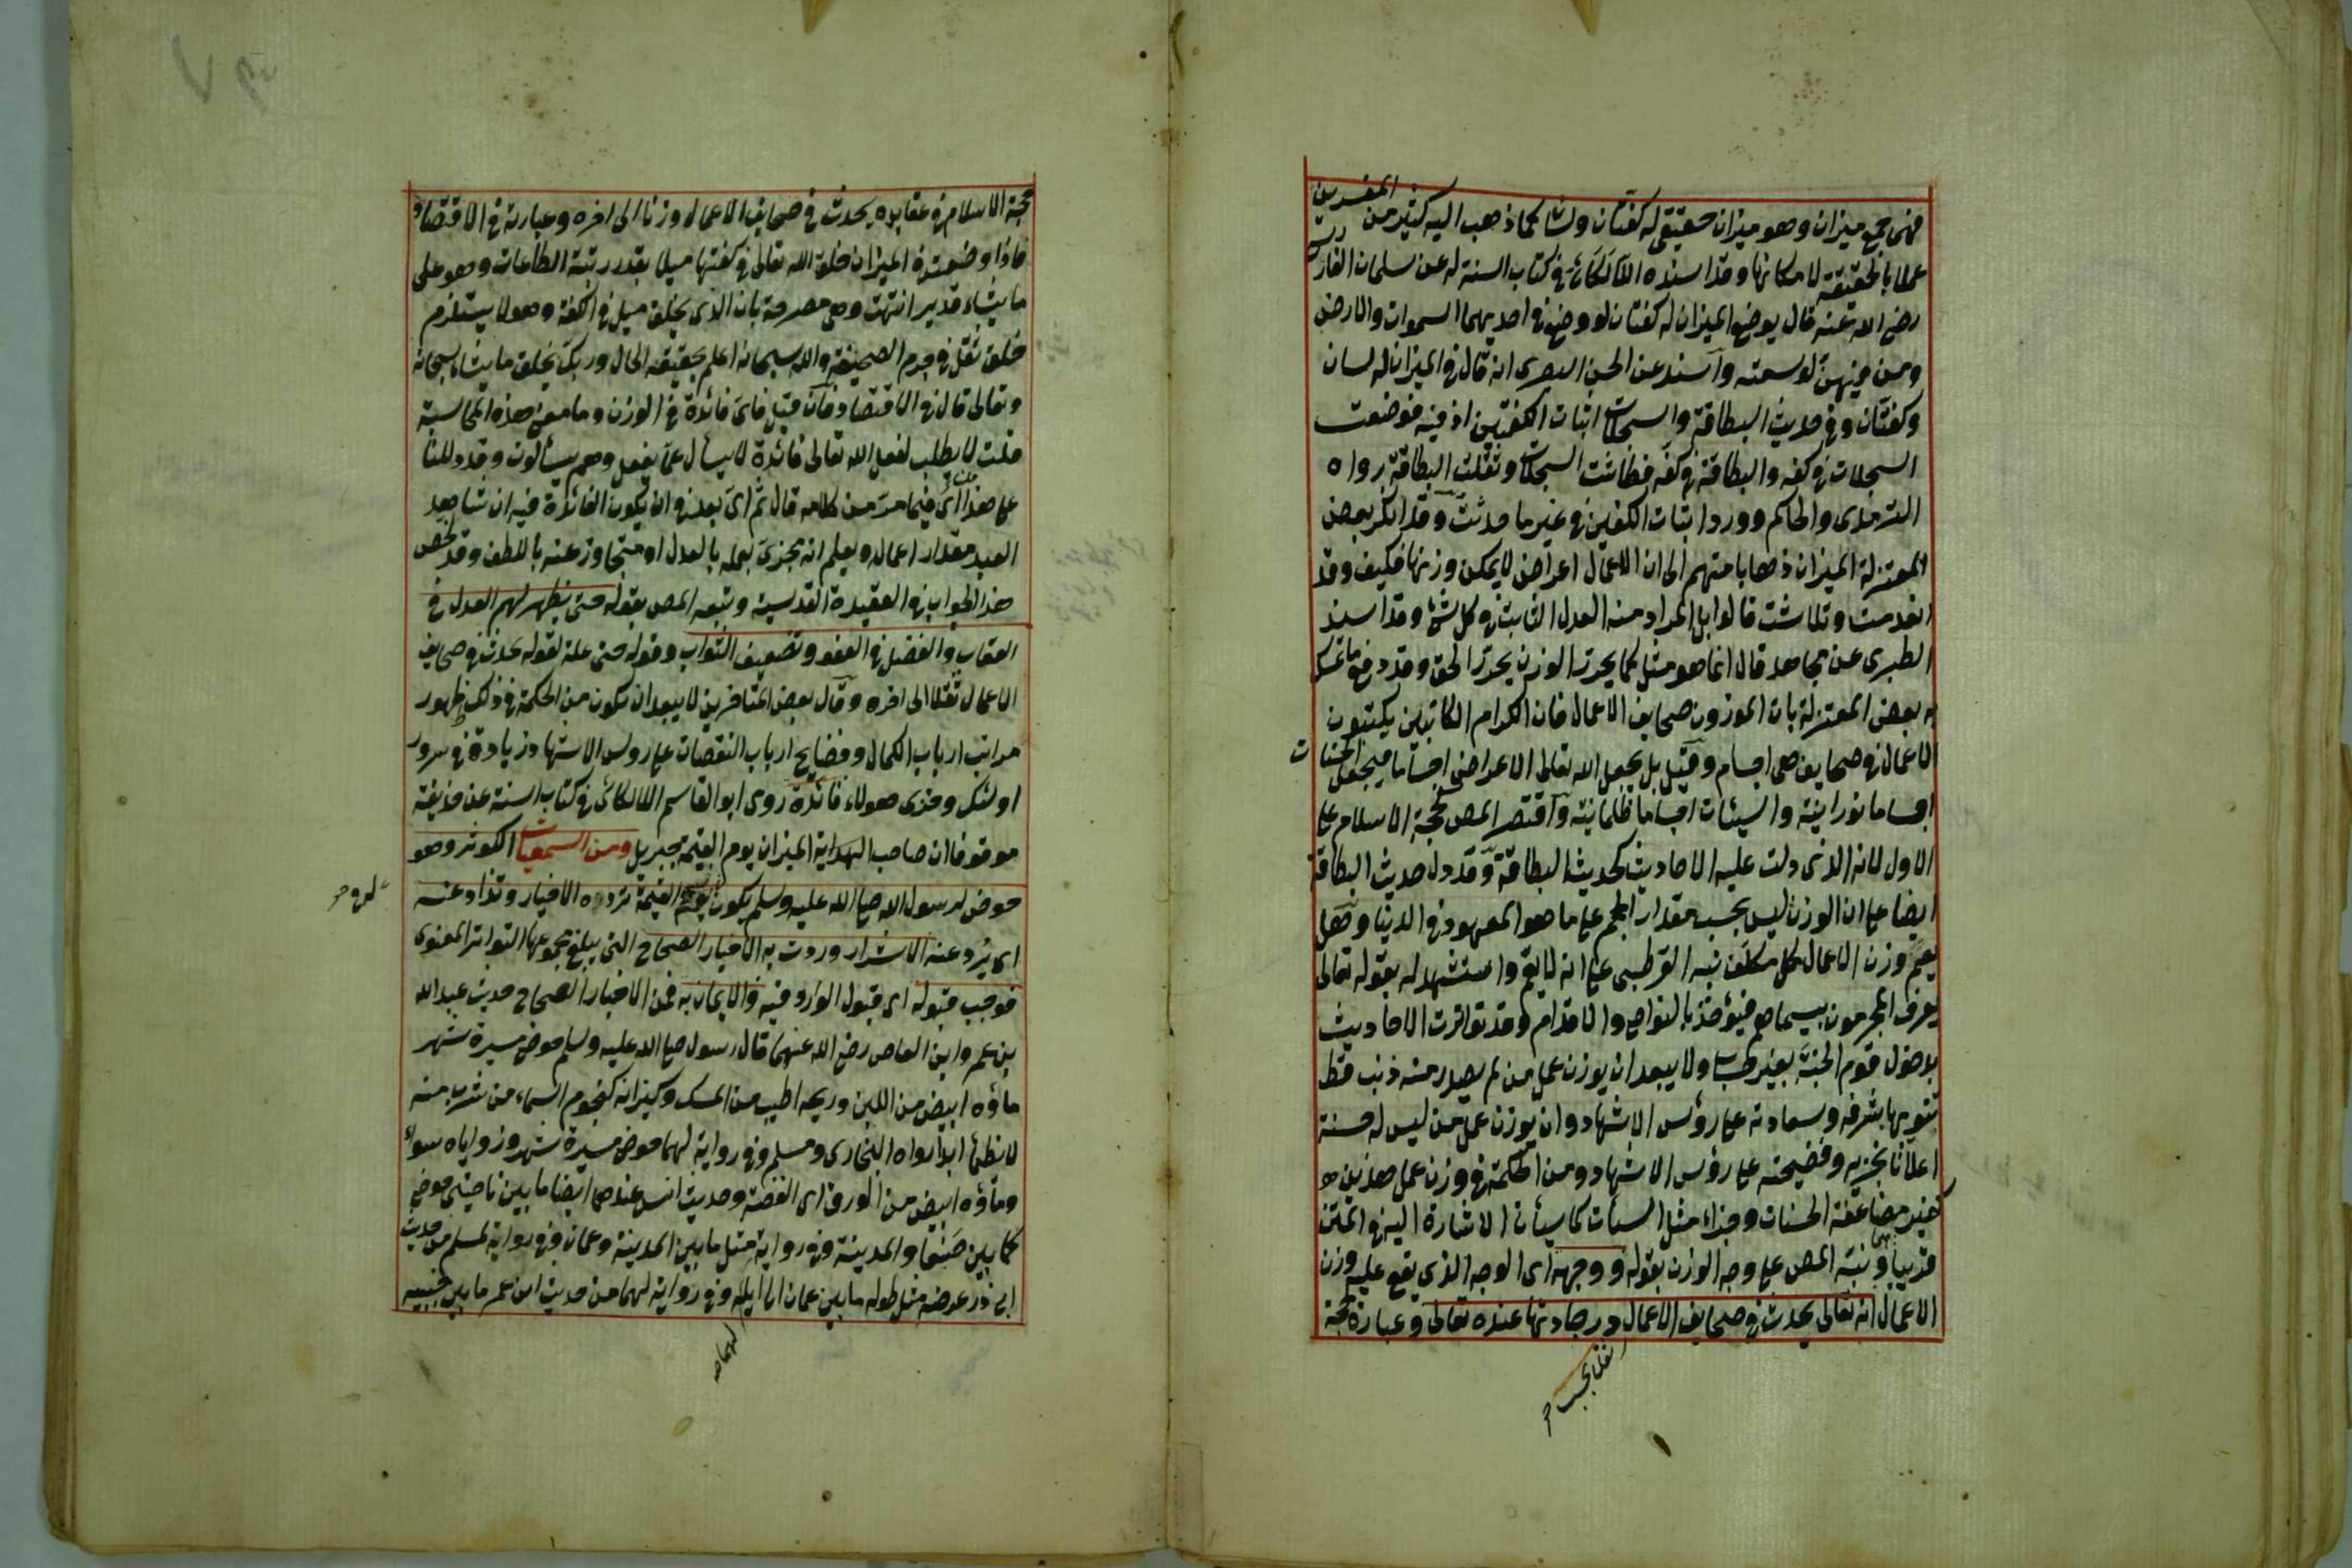 فهى جمع ميزان وهو ميزان حقيقى له كفتان ولسان كما ذهب اليه كثير من المفسرين
عملا بالحقيقة لامكانها وقد اسنده اللالكائى فى كتاب السنة له عن سلمان الفارسى
رضى الله عنه قال يوضع الميزان له كفتان لو وضع فى احديهما السموات والارض
ومن فيهن لوسعته واسند عن الحسن البصرى انه قال فى الميزان له لسان
وكفتان وفى حديث البطاقة والسجلات اثبات الكفتين اذ فيه فوضعت
السجلات فى كفه والبطاقة فى كفه فطاشت السجلات وثقلت البطاقة رواه
الترمذى والحاكم وورد اثبات الكفتين فى غير ما حديث وقد انكر بعض
المعتزلة الميزان ذهابا منهم الى ان الاعمال اعراض لا يمكن وزنها فكيف وقد
انعدمت وتلاشت قالوا بل المراد منه العدل الثابت فى كل شئ وقد اسند
الطبرى عن مجاهد قال انما هو مثل كما يحرز الوزن يحرز الحق وقد دفع ما تمسك
به بعض المعتزلة بان الموزون صحايف الاعمال فان الكرام الكاتبين يكتبون
الاعمال فى صحايف هى اجسام وقيل بل يجعل الله تعالى الاعراض اجساما فيجعل الحسنات
اجساما نورانية والسيئات اجساما ظلمانية واقتصر المص كحجة الاسلام على
الاول لانه الذى دلت عليه الاحاديث كحديث البطاقة وقد دل حديث البطاقة
ايضا على ان الوزن ليس بحسب مقدار الحجم على ما هو المعهود فى الدنيا وهل
يعم وزن الاعمال كل مكلف نبه القرطبى على انه لا يعم واستشهد له بقوله تعالى
يعرف المجرمون بسيماهم فيؤخذ بالنواصى والاقدام وقد تواترت الاحاديث
بدخول قوم الجنة بغير حساب ولا يبعد ان يوزن عمل من لم يصدر منه ذنب قط
تنويها بشرفه وسعادته على رؤس الاشهاد وان يوزن عمل من ليس له حسنة
اعلانا بخزيه وفضيحته على رؤس الاشهاد ومن الحكمة فى وزن عمل هذين
مضاعفة الحسنات وجزاء مثل السيأت كما سيأتى الاشارة اليه فى المتن
قريبا ونبه المص على وجه الوزن بقوله ووجهه اى الوجه الذى يقع عليه وزن
الاعمال انه تعالى يحدث فى صحايف الاعمال درجاتها عنده تعالى وعبارة حجة
ثقلا بحسب
حجة الاسلام فى عقايده يحدث فى صحايف الاعمال وزنا الى اخره وعبارته فى الاقتصاد
فاذا وضعت فى الميزان خلق الله تعالى فى كفتها ميلا بقدر رتبة الطاعات وهو على
ما يشاء قدير انتهت وهى مصرحة بان الذى يخلق ميل فى الكفة وهو لا يستلزم
خلق ثقل فى جرم الصحيفة والله سبحانه اعلم بحقيقة الحال وربك يخلق ما يشاء سبحانه
وتعالى قال فى الاقتصاد فان قيل فاى فائدة فى الوزن وما معنى هذه المحاسبة
قلت لا يطلب لفعل الله تعالى فائدة لا يسأل عما يفعل وهم يسألون وقد دللنا
على هذا اى فيما مر من كلامه قال ثم اى بعد فى ان يكون الفائدة فيه ان شاهد
العبد مقدار اعماله ويعلم انه مجزى بعمله بالعدل او متجاوز عنه باللطف وقد لخص
هذا الجواب فى العقيدة القدسية وتبعه المص بقوله حتى يظهر لهم العدل فى
العقاب والفضل فى العفو وتضعيف الثواب وقوله حتى علة لقوله يحدث فى صحايف
الاعمال ثقلا الى اخره وقال بعض المتاخرين لا يبعد ان يكون من الحكمة فى ذلك ظهور
مراتب ارباب الكمال وفضايح ارباب النقصان على روس الاشهاد زيادة فى سرور
اولئك وخزى هولاء فائدة روى ابو القاسم اللالكائى فى كتاب السنة عن حذيفة
موقوفا ان صاحب الميزان يوم القيمة جبريل ومن السمعيات الكوثر وهو
حوض لرسول الله صلى الله عليه وسلم يكون يوم القيمة ترده الاخيار وتذاد عنه
اى يرد عنه الاشرار وردت به الاخبار الصحاح التى يبلغ مجموعها التواتر المعنوى
فوجب قبوله اى قبول الوارد فيه والايمان به فمن الاخبار الصحاح حديث عبد الله
بن عمرو ابن العاص رضى الله عنهما قال رسول صلى الله عليه وسلم حوضى مسيرة شهر
ماؤه ابيض من اللبن وريحه اطيب من المسك وكيزانه كنجوم السماء من شرب منه
لا يظمأ ابدا رواه البخارى ومسلم وفى رواية لهما حوضى مسيرة شهر وزواياه سواء
وماؤه ابيض من الورق اى الفضة وحديث انس عندهما ايضا ما بين ناحيتى حوضى
كما بين صنعا والمدينة وفى رواية مثل ما بين المدينة وعمان وفى رواية لمسلم من حديث
ابى ذر عرضه مثل طوله ما بين عمان الى ايلة وفى رواية لهما من حديث ابن عمر ما بين جنبيه